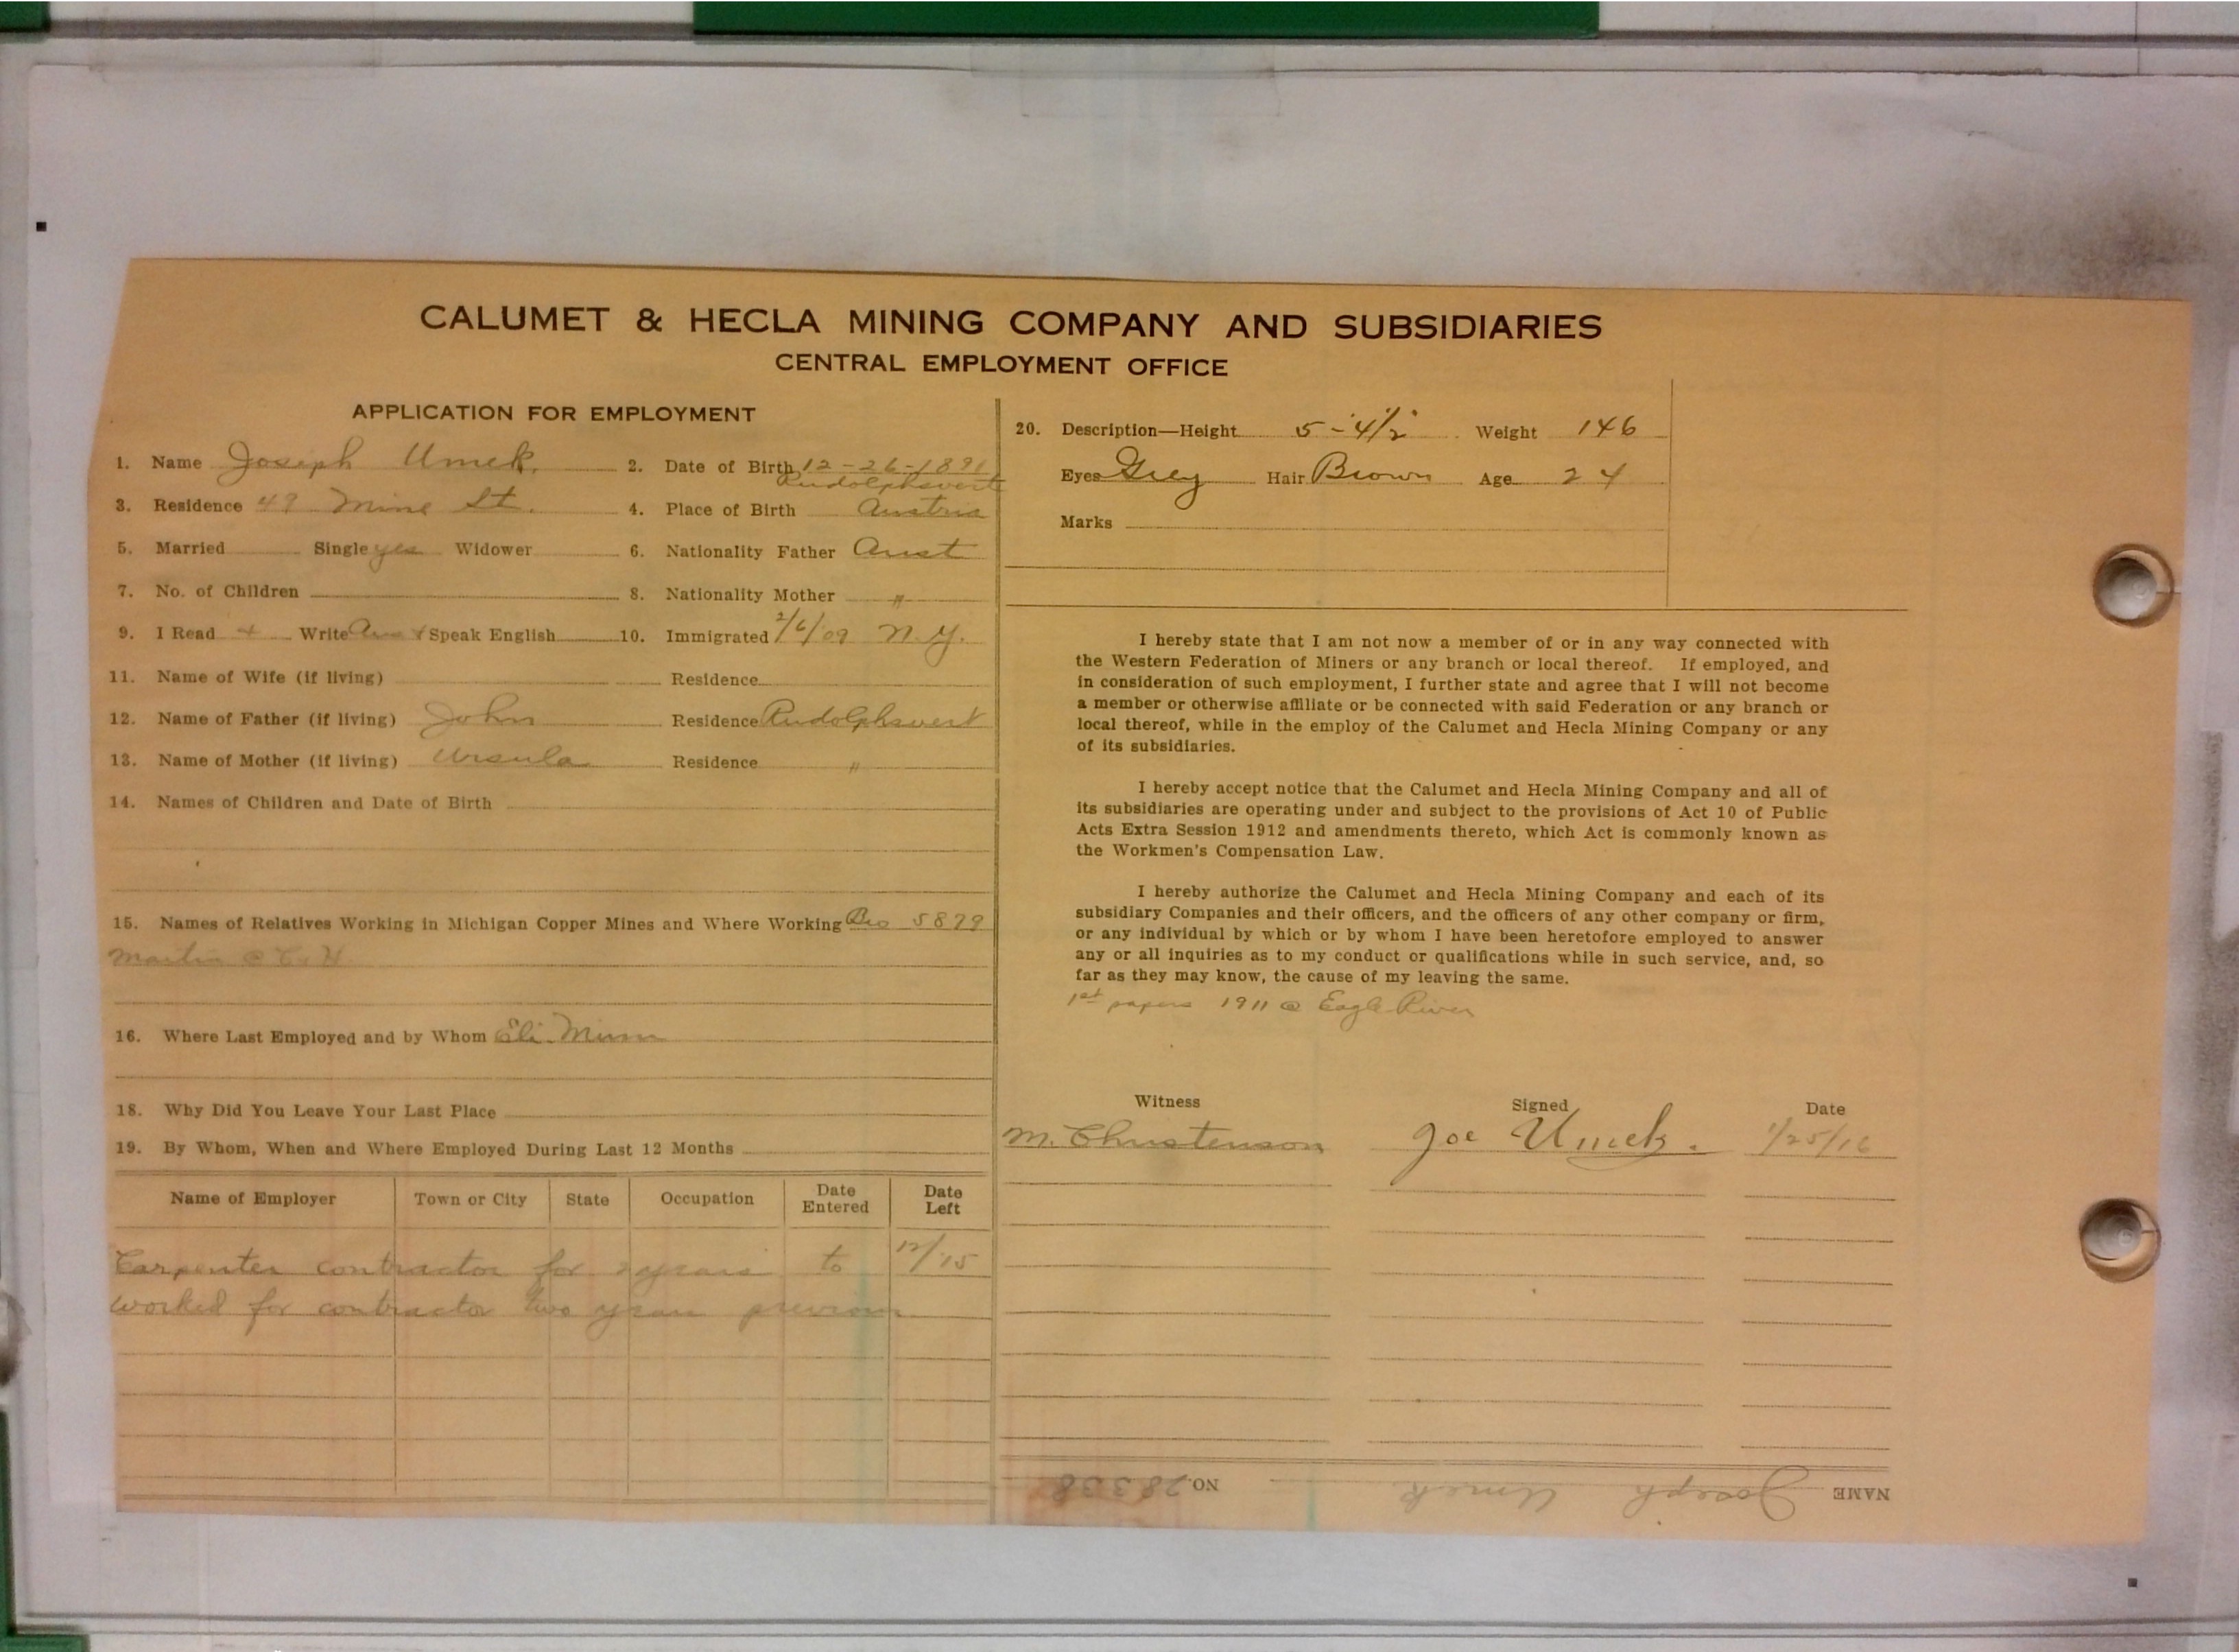 CALUMET & HECLA MINING COMPANY AND SUBSIDIARIES
CENTRAL EMPLOYMENT OFFICE
APPLICATION FOR EMPLOYMENT
1. Name Joseph Umek. 2. Date of Birth 12-26-1891
Rudolphswert
3. Residence 49 Mine St. 4. Place of Birth Austria
5. Married Single yes Widower 6. Nationality Father Aust
7. No. of Children 8. Nationality Mother "
9. I Read + Write Aus + Speak English 10. Immigrated 2/6/09 N.Y.
11. Name of Wife (if living) Residence
12. Name of Father (if living) John Residence Rudolphswert
13. Name of Mother (if living) Ursula Residence "
14. Names of Children and Date of Birth
15. Names of Relatives Working in Michigan Copper Mines and Where Working Bro 5879
Martin @ C. & H.
16. Where Last Employed and by Whom Eli
18. Why Did You Leave Your Last Place
19. By Whom, When and Where Employed During Last 12 Months
Name of Employer Town or City State Occupation Date Entered Date Left
Carpenter contractor for 2 years to 12/15
worked for contractor two years previous
20. Description—Height 5-4 1/2 Weight 146
Eyes Grey Hair Brown Age 24
Marks
I hereby state that I am not now a member of or in any way connected with
the Western Federation of Miners or any branch or local thereof. If employed, and
in consideration of such employment, I further state and agree that I will not become
a member or otherwise affiliate or be connected with said Federation or any branch or
local thereof, while in the employ of the Calumet and Hecla Mining Company or any
of its subsidiaries.
I hereby accept notice that the Calumet and Hecla Mining Company and all of
its subsidiaries are operating under and subject to the provisions of Act 10 of Public
Acts Extra Session 1912 and amendments thereto, which Act is commonly known as
the Workmen's Compensation Law.
I hereby authorize the Calumet and Hecla Mining Company and each of its
subsidiary Companies and their officers, and the officers of any other company or firm,
or any individual by which or by whom I have been heretofore employed to answer
any or all inquiries as to my conduct or qualifications while in such service, and, so
far as they may know, the cause of my leaving the same.
1st papers 1911 @ Eagle River
Witness Signed Date
M. Christenson Joe Umek. 1/25/16
NAME Joseph Umek NO. 28338